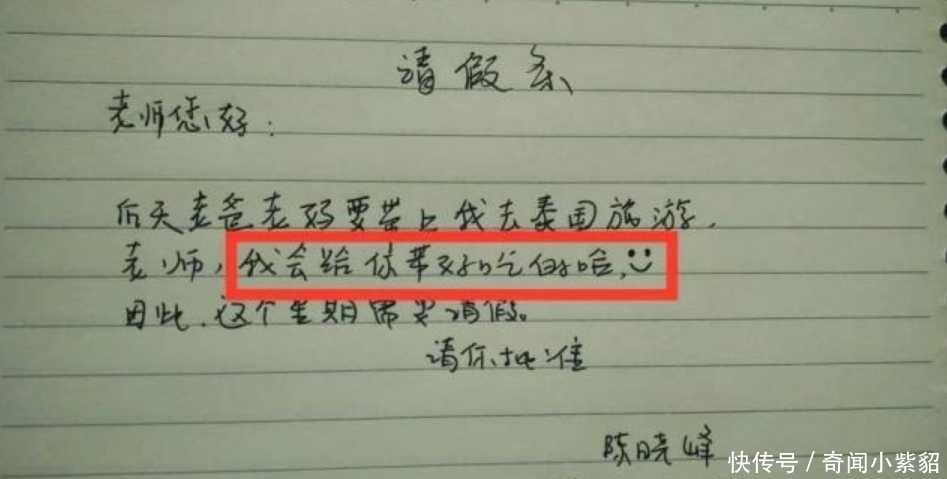 请假条
老师您好：
后天老爸老妈要带上我去泰国旅游.
老师,我会给你带好吃的哈,
因此.这个星期需要请假。
请你批准
陈晓峰
快传号/奇闻小紫貂